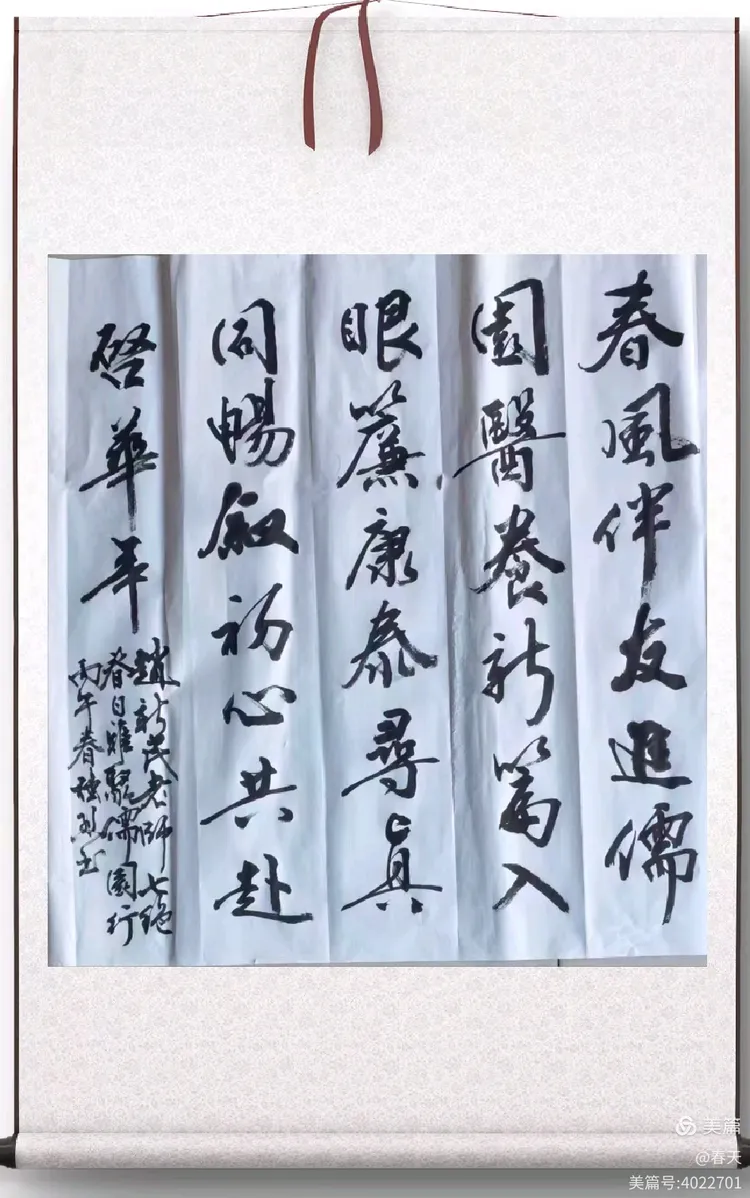 春風伴友進儒
園醫養新篇入
眼簾康泰尋真
同暢敘初心共赴
啓華年
趙新民老師七絕
春日雅聚儒園行
丙午春 書
美篇
@春天
美篇号:4022701